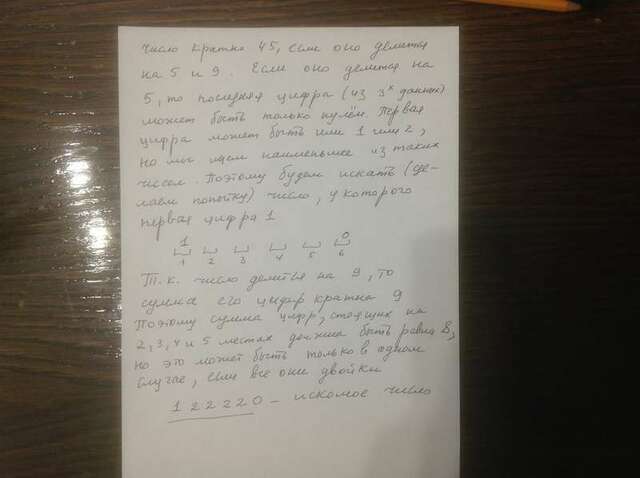 Число кратно 45, если оно делится
на 5 и 9. Если оно делится на
5, то последняя цифра (из 3х данных)
может быть только нулём. Первая
цифра может быть или 1 или 2,
но мы ищем наименьшее из таких
чисел. Поэтому будем искать (сде-
лаем попытку) число, у которого
первая цифра 1
1 0
1 2 3 4 5 6
Т.к. число делится на 9, то
сумма его цифр кратна 9
Поэтому сумма цифр, стоящих на
2, 3, 4 и 5 местах должна быть равна 8,
но это может быть только в одном
случае, если все они двойки
122220 - искомое число